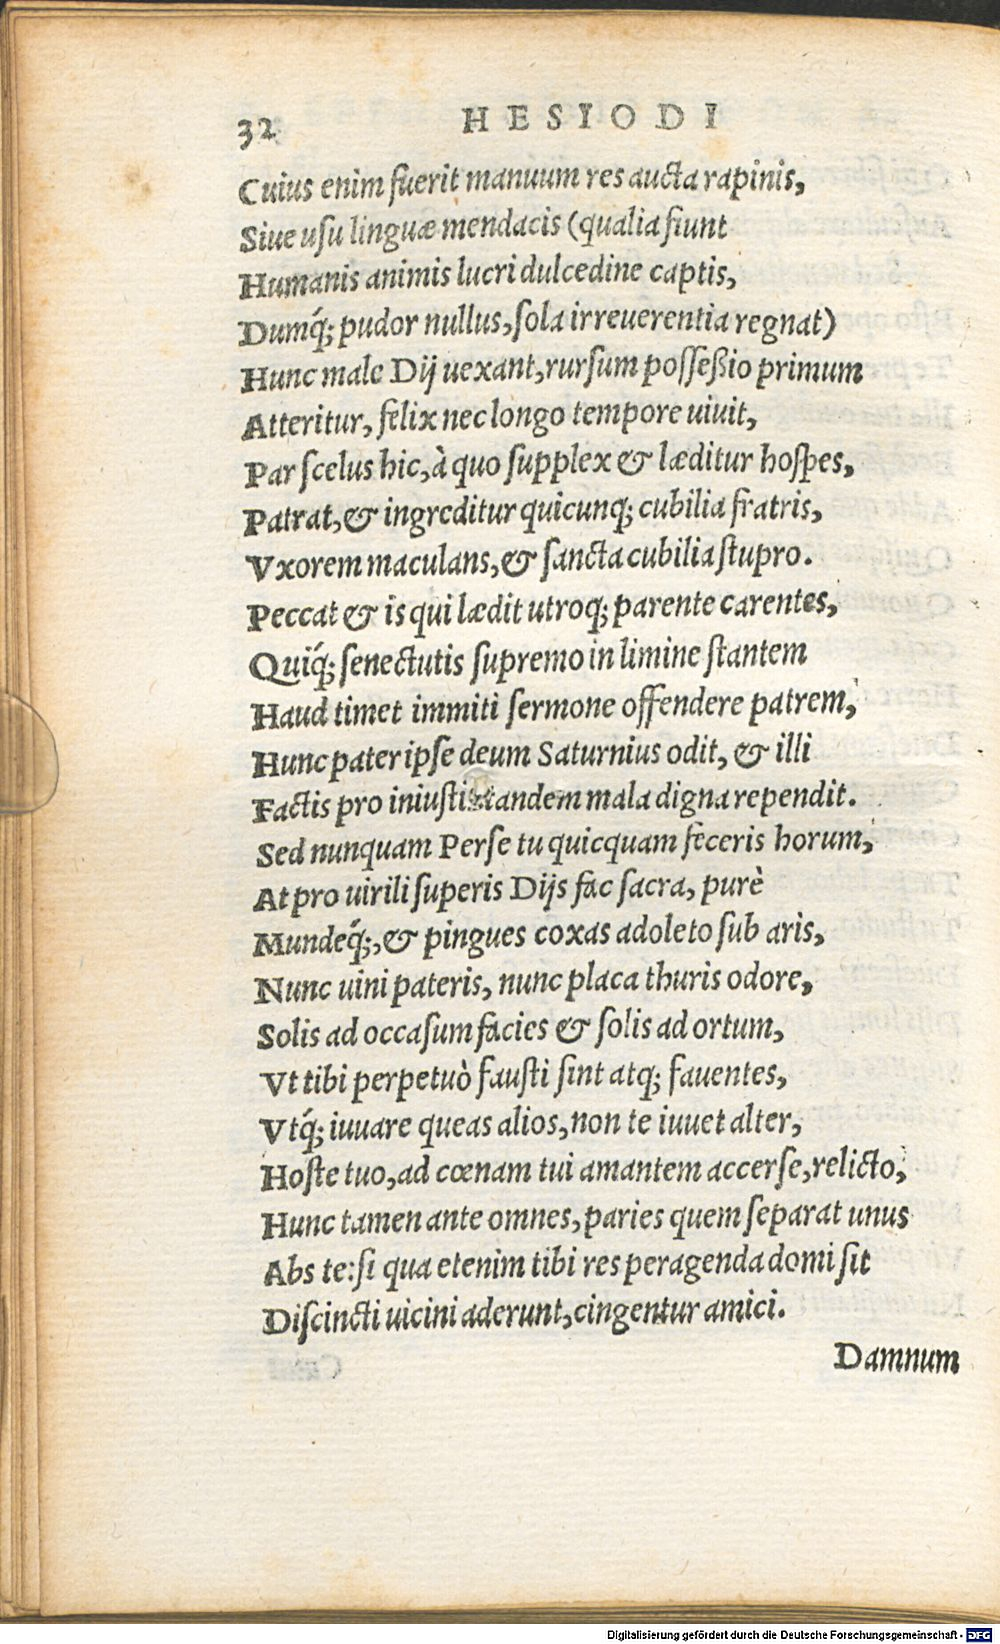 32 HESIODI
Cuius enim fuerit manuum res aucta rapinis,
Siue usu linguæ mendacis (qualia fiunt
Humanis animis lucri dulcedine captis,
Dumq́; pudor nullus, sola irreuerentia regnat)
Hunc male Dij uexant, rursum posseßio primum
Atteritur, felix nec longo tempore uiuit,
Par scelus hic, à quo supplex & læditur hospes,
Patrat, & ingreditur quicunq; cubilia fratris,
Vxorem maculans, & sancta cubilia stupro.
Peccat & is qui lædit utroq; parente carentes,
Quiq́; senectutis supremo in limine stantem
Haud timet immiti sermone offendere patrem,
Hunc pater ipse deum Saturnius odit, & illi
Factis pro iniustis tandem mala digna rependit.
Sed nunquam Perse tu quicquam feceris horum,
At pro uirili superis Dijs fac sacra, purè
Mundeq́;, & pingues coxas adoleto sub aris,
Nunc uini pateris, nunc placa thuris odore,
Solis ad occasum facies & solis ad ortum,
Vt tibi perpetuò fausti sint atq; fauentes,
Vtq́; iuuare queas alios, non te iuuet alter,
Hoste tuo, ad cœnam tui amantem accerse, relicto,
Hunc tamen ante omnes, paries quem separat unus
Abs te: si qua etenim tibi res peragenda domi sit
Discincti uicini aderunt, cingentur amici.
Damnum
Digitalisierung gefördert durch die Deutsche Forschungsgemeinschaft - DFG